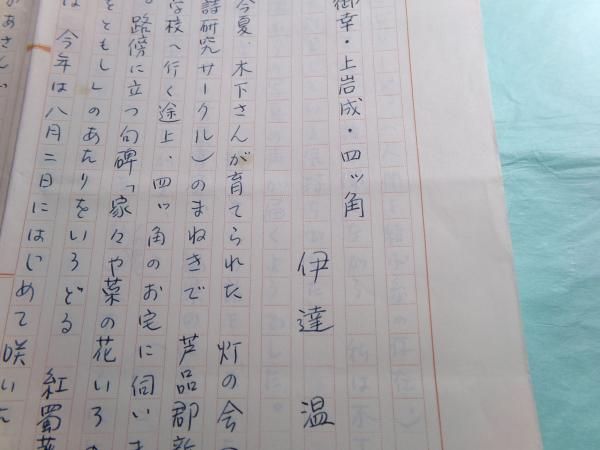 御幸・上岩成・四ッ角
伊達温
今夏、木下さんが育てられた灯の会
詩研究サークル)のまねきでの芦品郡新
学校へ行く途上、四ッ角のお宅に伺いま
。路傍に立つ句碑「家々や菜の花いろの
をともし」のあたりをいろどる 紅蜀葵
は 今年は八月二日にはじめて咲いた
があさん